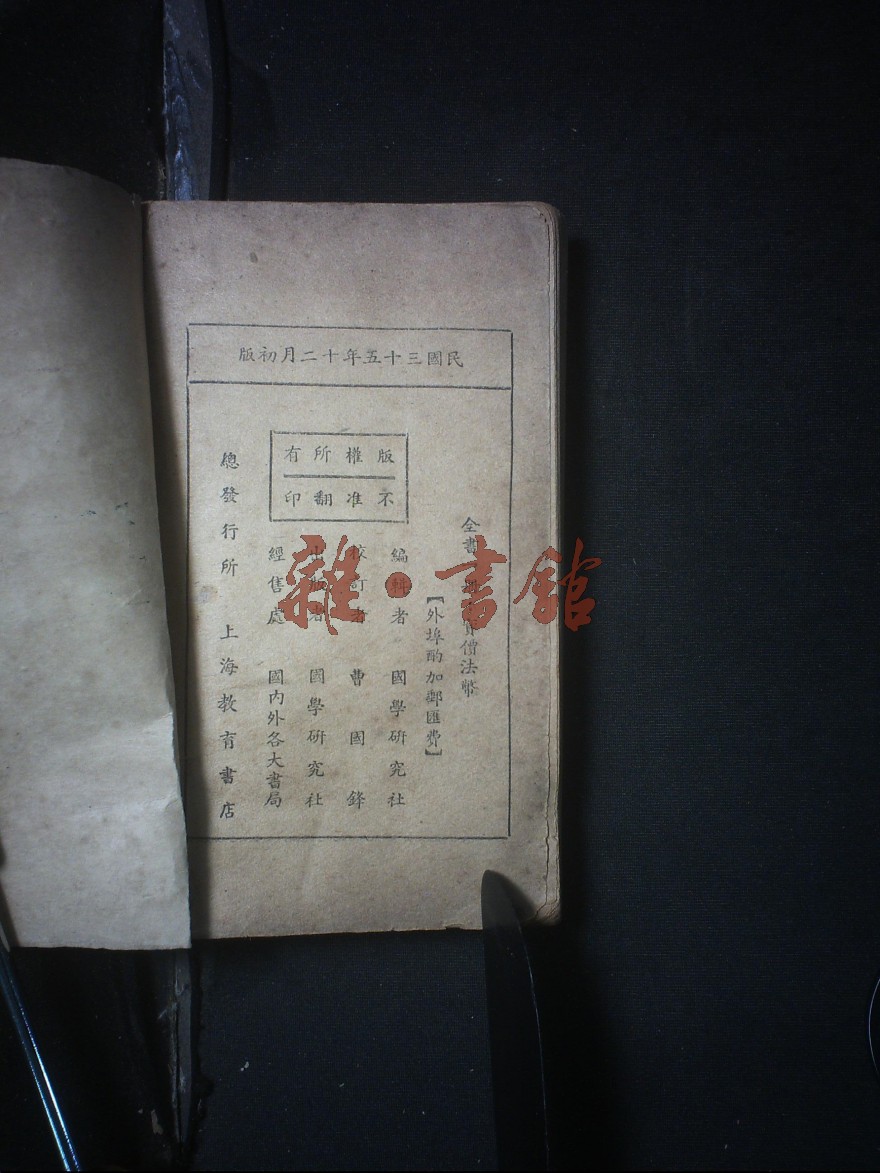 民國三十五年十二月初版
版權所有
不准翻印
全書 實價法幣
【外埠酌加郵匯費】
編輯者 國學研究社
校訂者 曹國鋒
出版者 國學研究社
經售處 國內外各大書局
總發行所 上海教育書店
雜·書館